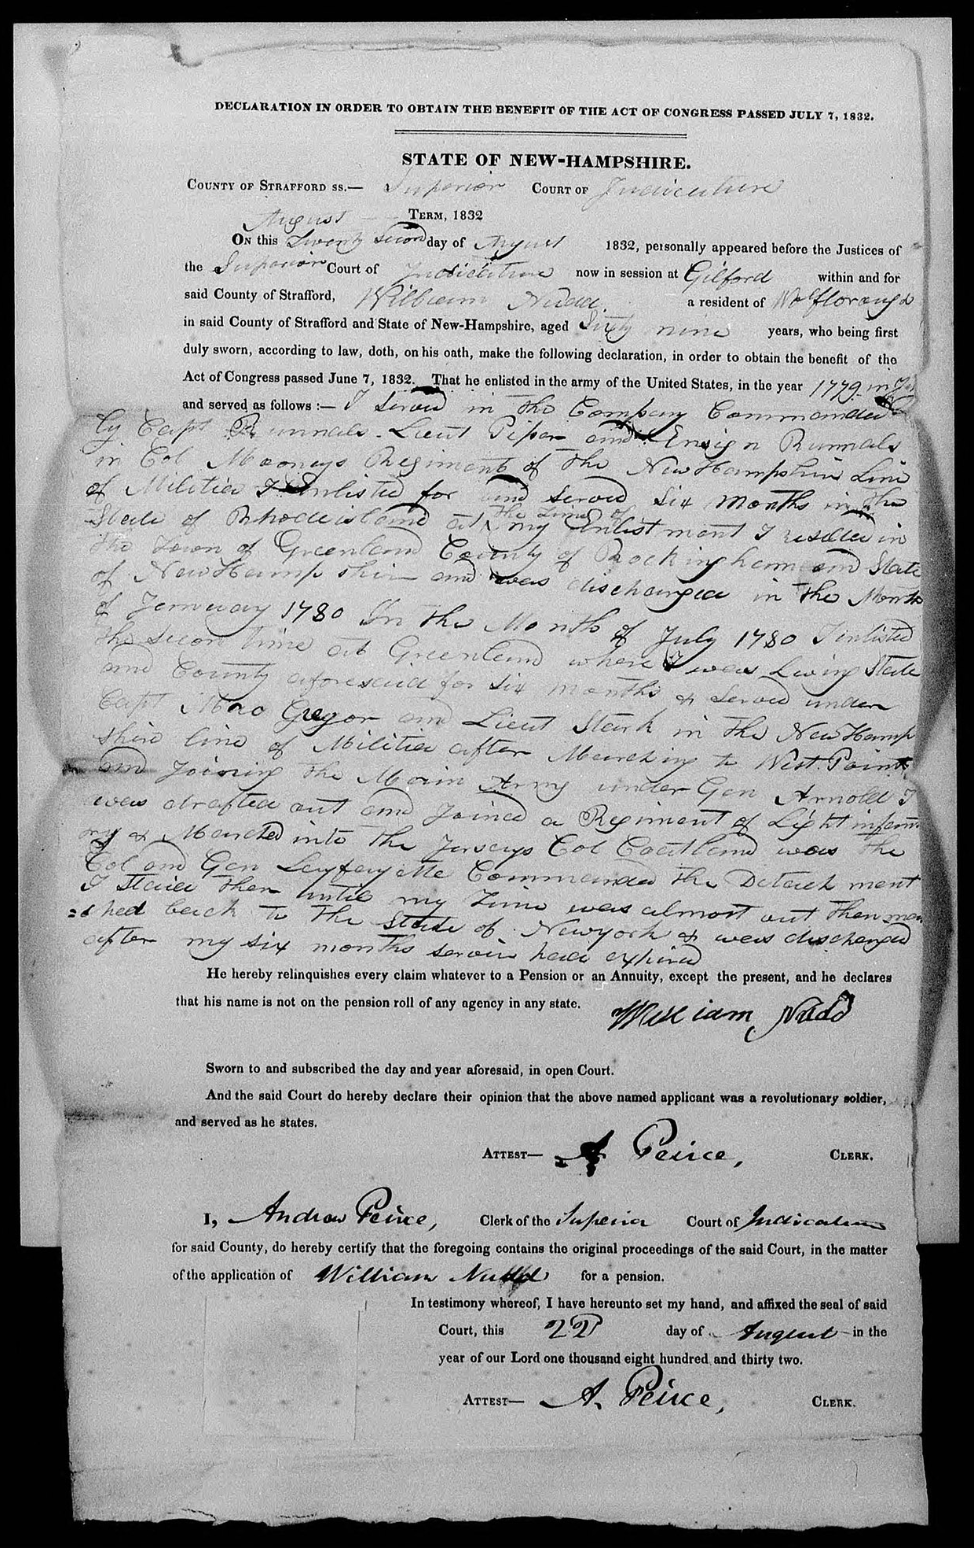 DECLARATION IN ORDER TO OBTAIN THE BENEFIT OF THE ACT OF CONGRESS PASSED JULY 7, 1832.
STATE OF NEW-HAMPSHIRE.
COUNTY OF STRAFFORD SS.— Superior COURT OF Judicature
August TERM, 1832
ON this Twenty Second day of August 1832, personally appeared before the Justices of
the Superior Court of Judicature now in session at Gilford within and for
said County of Strafford, William Nudd a resident of Wolfborough
in said County of Strafford and State of New-Hampshire, aged Sixty nine years, who being first
duly sworn, according to law, doth, on his oath, make the following declaration, in order to obtain the benefit of the
Act of Congress passed June 7, 1832. That he enlisted in the army of the United States, in the year 1779 in July
and served as follows :— I served in the Company Commanded
by Capt Runnals. Lieut Piper and Ensign Runnals
in Col Mooneys Regiment of the New Hampshire Line
of Militia I Enlisted for and served six months in the
State of Rhodeisland at the time of my Enlistment I resided in
the Town of Greenland County of Rockingham and State
of New Hampshire and was discharged in the Month
of Jenuary 1780 In the Month of July 1780 I inlisted
the secon time at Greenland where I was Living State
and County aforesaid for six months & served under
Capt Mac Gregor and Lieut Stark in the New Hamp
shire line of Militia after Marching to West Point
and Joining the Main Army under Gen Arnold I
was drafted out and Joined a Regiment of Light infant
ry & Marched into the Jerseys Col Cortland was the
Col and Gen Layfayette Commanded the Detachment
I staid then until my Time was almost out then mar
ched back to the State of Newyork & was discharged
after my six months servis had expired
He hereby relinquishes every claim whatever to a Pension or an Annuity, except the present, and he declares
that his name is not on the pension roll of any agency in any state.
William Nudd
Sworn to and subscribed the day and year aforesaid, in open Court.
And the said Court do hereby declare their opinion that the above named applicant was a revolutionary soldier,
and served as he states.
ATTEST— A Peirce, CLERK.
I, Andrew Peirce, Clerk of the Superior Court of Judicature
for said County, do hereby certify that the foregoing contains the original proceedings of the said Court, in the matter
of the application of William Nudd for a pension.
In testimony whereof, I have hereunto set my hand, and affixed the seal of said
Court, this 22 day of August in the
year of our Lord one thousand eight hundred and thirty two.
ATTEST— A. Peirce, CLERK.